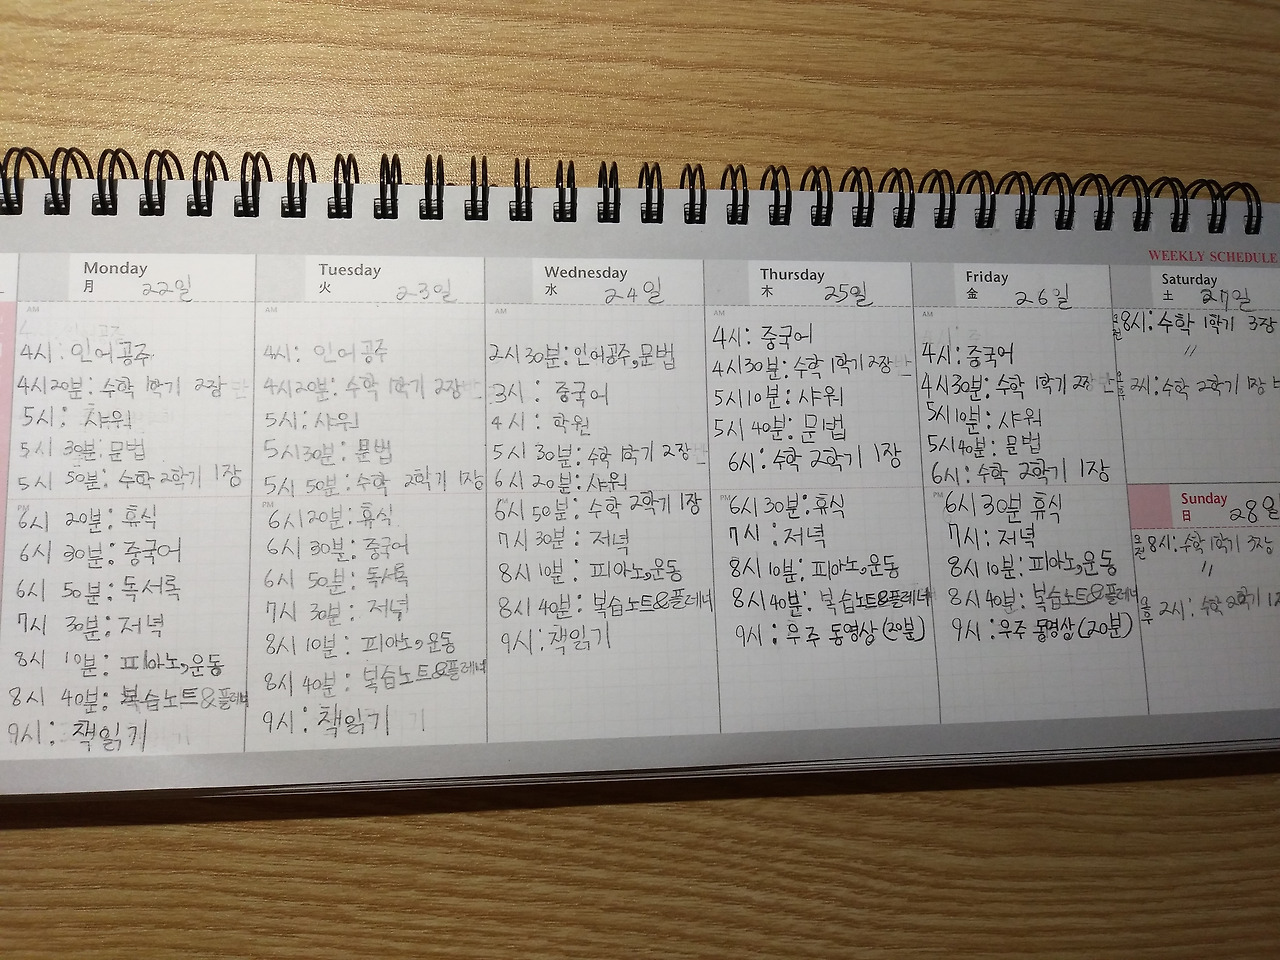 WEEKLY SCHEDULE
Monday
月 22일
AM
4시: 인어공주
4시20분: 수학 1학기 2장
5시: 샤워
5시 30분: 문법
5시 50분: 수학 2학기 1장
PM
6시 20분: 휴식
6시 30분: 중국어
6시 50분: 독서록
7시 30분: 저녁
8시 10분: 피아노,운동
8시 40분: 복습노트&플레너
9시: 책읽기
Tuesday
火 23일
AM
4시: 인어공주
4시20분: 수학 1학기 2장
5시: 샤워
5시30분: 문법
5시 50분: 수학 2학기 1장
PM
6시20분: 휴식
6시 30분: 중국어
6시 50분: 독서록
7시 30분: 저녁
8시 10분: 피아노,운동
8시 40분: 복습노트&플레너
9시: 책읽기
Wednesday
水 24일
AM
2시30분: 인어공주,문법
3시: 중국어
4시: 학원
5시 30분: 수학 1학기 2장
6시 20분: 샤워
PM
6시 50분: 수학 2학기 1장
7시 30분: 저녁
8시 10분: 피아노,운동
8시 40분: 복습노트&플레너
9시: 책읽기
Thursday
木 25일
AM
4시: 중국어
4시30분: 수학 1학기 2장
5시10분: 샤워
5시 40분: 문법
6시: 수학 2학기 1장
PM
6시 30분: 휴식
7시: 저녁
8시 10분: 피아노,운동
8시 40분: 복습노트&플레너
9시: 우주 동영상(20분)
Friday
金 26일
AM
4시: 중국어
4시30분: 수학 1학기 2장
5시10분: 샤워
5시40분: 문법
6시: 수학 2학기 1장
PM
6시 30분 휴식
7시: 저녁
8시 10분: 피아노,운동
8시 40분: 복습노트&플레너
9시: 우주 동영상(20분)
Saturday
土 27일
오전 8시: 수학 1학기 3장
〃
오후 2시: 수학 2학기 1장
Sunday
日 28일
오전 8시: 수학 1학기 3장
〃
오후 2시: 수학 2학기